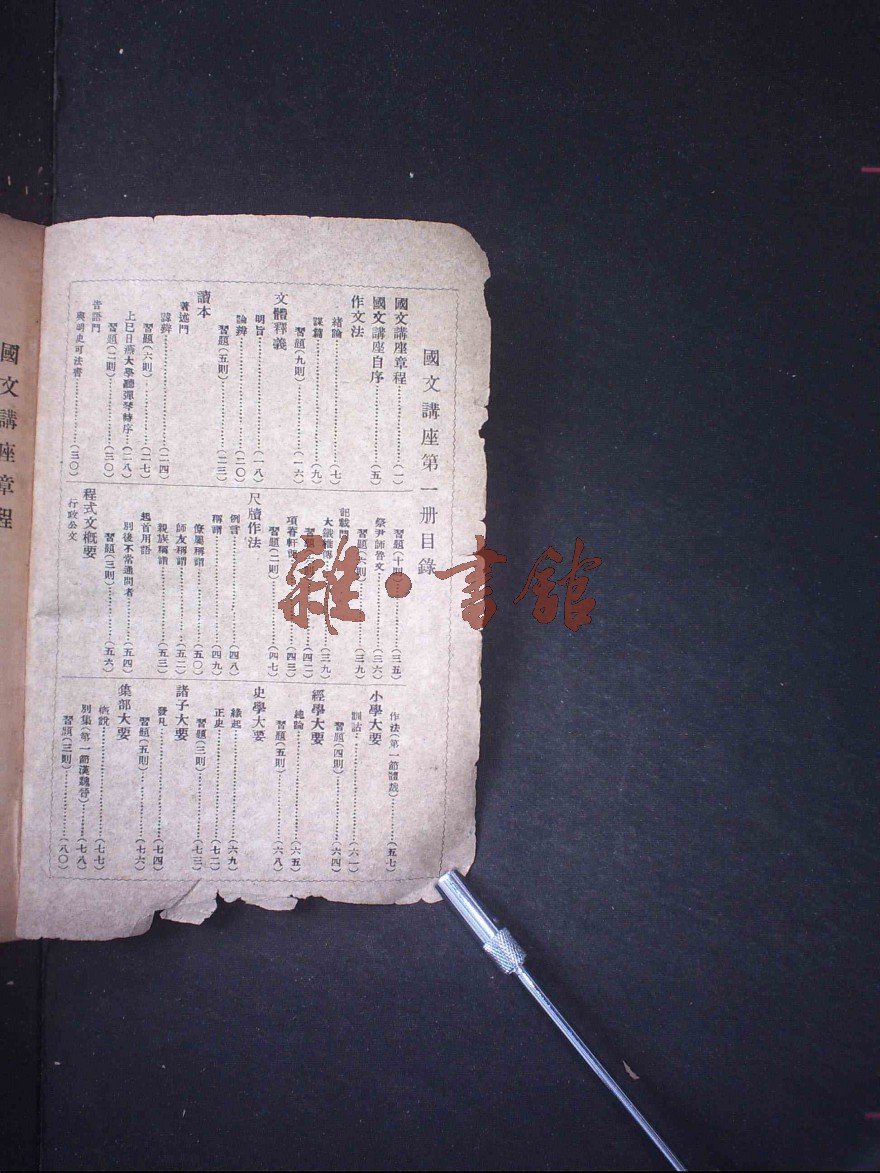 國文講座第一册目錄
國文講座章程……(一)
國文講座自序……(五)
作文法
緒論……(七)
謀篇……(九)
習題(九則)……(一六)
文體釋義
明旨……(一八)
論辨……(二〇)
習題(五則)……(二三)
讀本
著述門
諱辨……(二四)
習題(六則)……(二七)
上巳日燕大學聽彈琴詩序……(二八)
習題(二則)……(三〇)
告語門
與明史可法書……(三〇)
習題(十則)……(三五)
祭尹師魯文……(三六)
習題(六則)……(三九)
記載門
大鐵椎傳……(三九)
習題(則)……(四二)
項脊軒……(四三)
習題(二則)……(四七)
尺牘作法
例言……(四八)
稱謂……(四九)
僚屬稱謂……(五〇)
師友稱謂……(五二)
親族稱謂……(五三)
起首用語
別後不常通問者……(五四)
習題(三則)……(五六)
程式文概要
行政公文
作法(第一節體裁)……(五七)
小學大要
訓詁……(六一)
習題(四則)……(六四)
經學大要
總論……(六五)
習題(五則)……(六八)
史學大要
緣起……(六九)
正史……(七二)
習題(三則)……(七三)
諸子大要
發凡……(七四)
習題(五則)……(七六)
集部大要
槪說……(七七)
別集(第一節漢魏晉)……(七八)
習題(三則)……(八〇)
國文講座章程
雜·書館